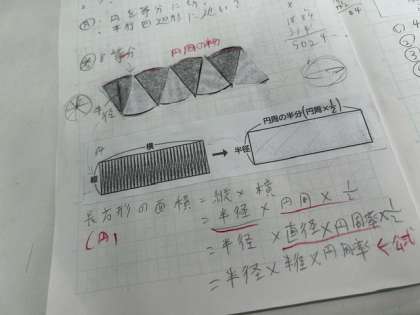 円を等分に
半径
8等分
円周の半分
半径
円
横
縦
半径
円周の半分(円周×1/2)
長方形の面積=縦×横
(円)
=半径×円周×1/2
=半径×直径×円周率×1/2
=半径×半径×円周率 ←公式